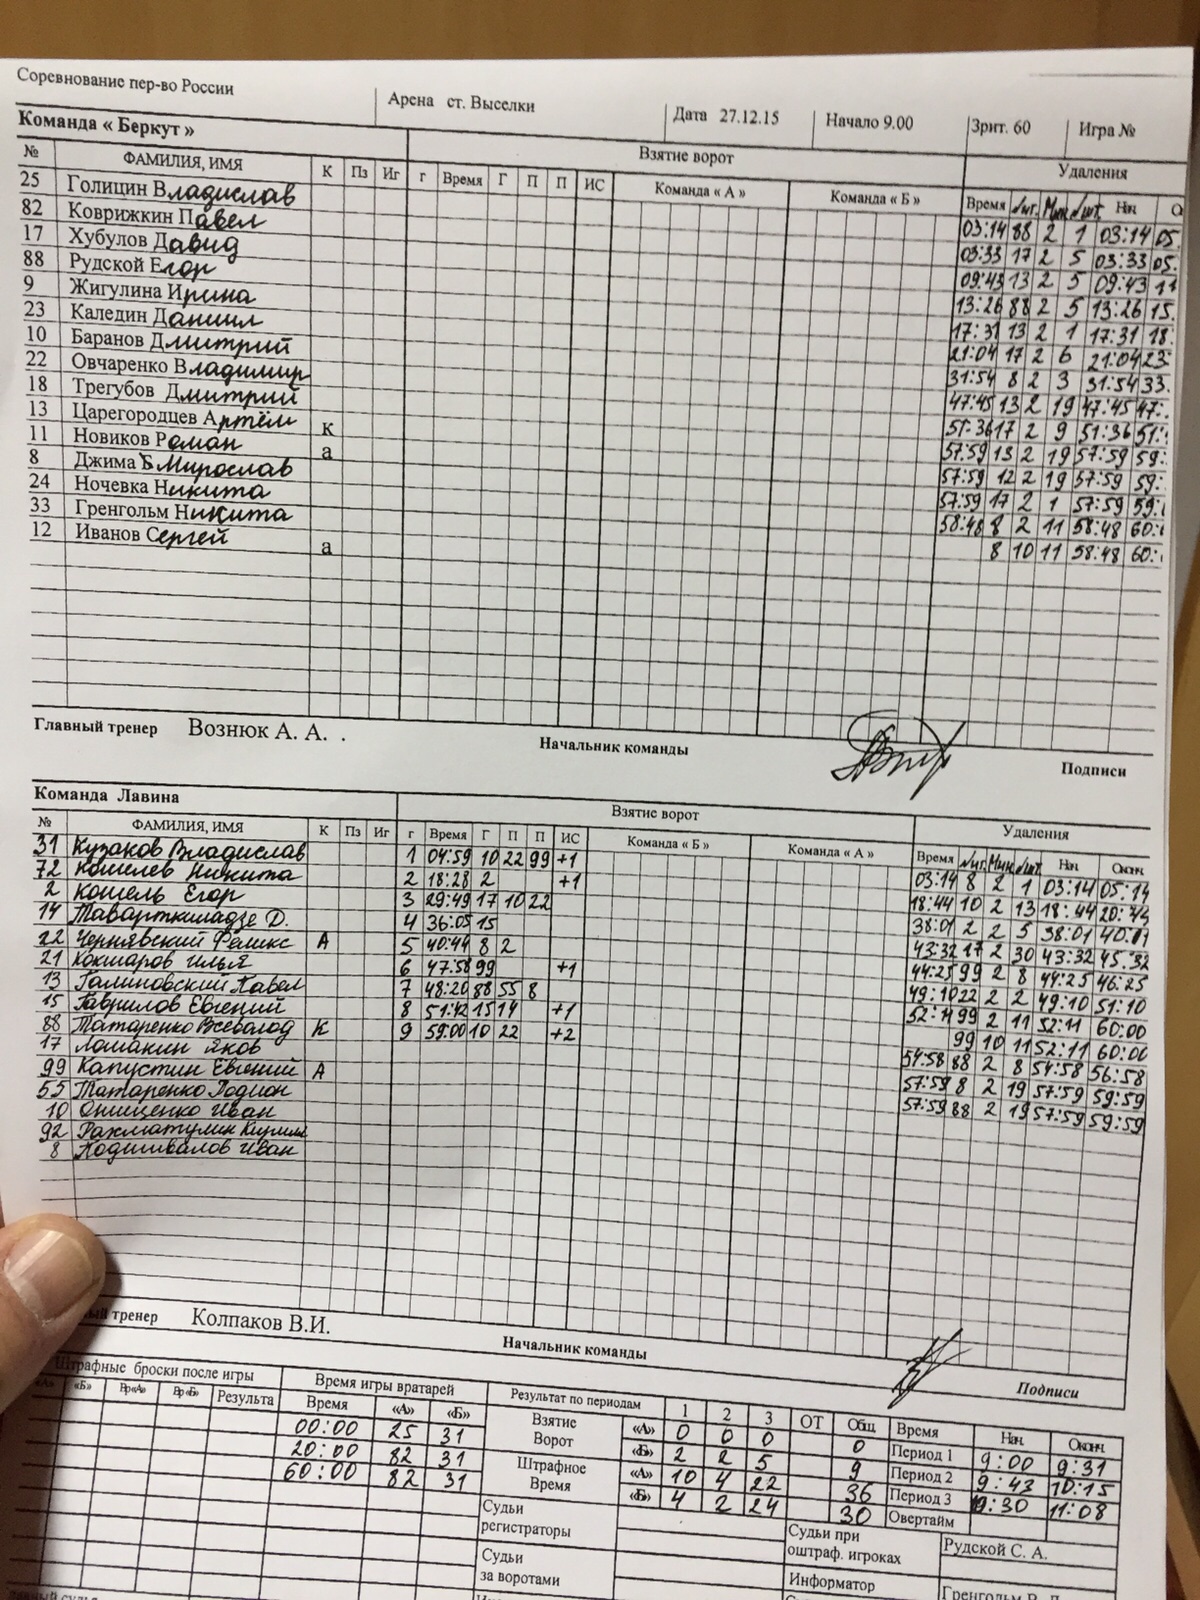 Соревнование пер-во России Арена ст. Выселки Дата 27.12.15 Начало 9.00 Зрит. 60 Игра №
Команда « Беркут » Взятие ворот Удаления
№ ФАМИЛИЯ, ИМЯ К Пз Иг г Время Г П П ИС Команда « А » Команда « Б » Время №иг. Мин №шт. Нач.
25 Голицин Владислав 03:14 88 2 1 03:14 05.
82 Коврижкин Павел 03:33 17 2 5 03:33 05.
17 Хубулов Давид 09:43 13 2 5 09:43 11
88 Рудской Егор 13:26 88 2 5 13:26 15.
9 Жигулина Ирина 17:31 13 2 1 17:31 18:
23 Каледин Даниил 21:04 17 2 6 21:04 23:
10 Баранов Дмитрий 31:54 8 2 3 31:54 33.
22 Овчаренко Владимир 47:45 13 2 19 47:45 47:
18 Трегубов Дмитрий 51:36 17 2 9 51:36 51:
13 Царегородцев Артём К 57:59 13 2 19 57:59 59:
11 Новиков Роман а 57:59 12 2 19 57:59 59:
8 Джима Б Мирослав 57:59 17 2 1 57:59 59:
24 Ночевка Никита 58:48 8 2 11 58:48 60:
33 Гренгольм Никита 8 10 11 58:48 60:
12 Иванов Сергей а
Главный тренер Вознюк А. А. . Начальник команды Подписи
Команда Лавина Взятие ворот Удаления
№ ФАМИЛИЯ, ИМЯ К Пз Иг г Время Г П П ИС Команда « Б » Команда « А » Время №иг. Мин №шт. Нач. Оконч.
31 Кузаков Владислав 1 04:59 10 22 99 +1 03:14 8 2 1 03:14 05:14
72 Кошелев Никита 2 18:28 2 +1 18:44 10 2 13 18:44 20:44
2 Кошель Егор 3 29:49 17 10 22 38:01 2 2 5 38:01 40:01
14 Таварткиладзе Д. 4 36:05 15 43:32 17 2 30 43:32 45:32
22 Чернявский Феликс А 5 40:44 8 2 44:25 99 2 8 44:25 46:25
21 Кокшаров Илья 6 47:58 99 +1 49:10 22 2 2 49:10 51:10
13 Галиновский Павел 7 48:20 88 55 8 52:11 99 2 11 52:11 60:00
15 Гаврилов Евгений 8 51:42 15 14 +1 99 10 11 52:11 60:00
88 Татаренко Всеволод К 9 59:00 10 22 +2 54:58 88 2 8 54:58 56:58
17 Ломакин Яков 57:59 8 2 19 57:59 59:59
99 Капустин Евгений А 57:59 88 2 19 57:59 59:59
55 Татаренко Родион
10 Онищенко Иван
92 Рахматулин Кирилл
8 Подшивалов Иван
тренер Колпаков В.И. Начальник команды Подписи
Штрафные броски после игры Время игры вратарей Результат по периодам 1 2 3 ОТ Общ. Время Нач. Оконч.
«А» «Б» Вр«А» Вр«Б» Результа Время «А» «Б» Взятие Ворот «А» 0 0 0 0 Период 1 9:00 9:31
00:00 25 31 «Б» 2 2 5 9 Период 2 9:43 10:15
20:00 82 31 Штрафное Время «А» 10 4 22 36 Период 3 10:30 11:08
60:00 82 31 «Б» 4 2 24 30 Овертайм
Судьи регистраторы Судьи при оштраф. игроках Рудской С. А.
Судьи за воротами Информатор